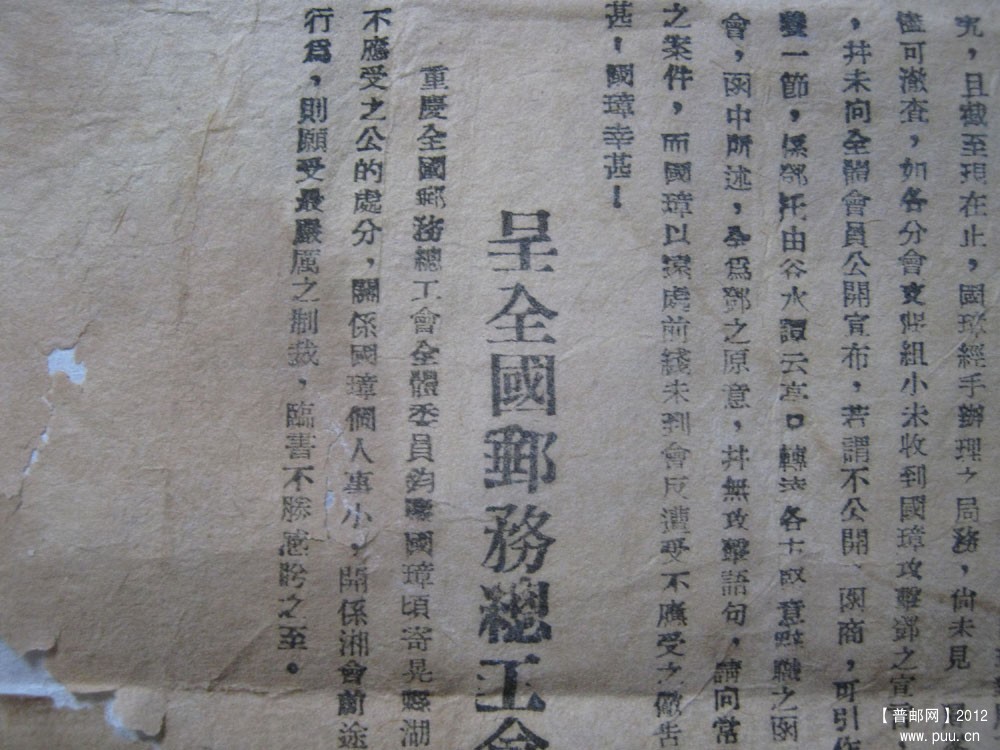 究，且截至現在止，國璋經手辦理之局務，尙未見
儘可澈查，如各分會支部組小未收到國璋攻擊鄧之宣
，幷未向全體會員公開宣布，若謂不公開、函商，可引作
一節，係鄧托由谷水譚云亭口轉達各 意 職之函
會，函中所述，全爲鄧之原意，幷無攻擊語句，請向常
之案件，而國璋以遠處前綫未到會反遭受不應受之儆吿
甚，國璋幸甚！
呈全國郵務總工會
重慶全國郵務總工會全體委員鈞鑒國璋頃寄晃縣湖
不應受之公的處分，關係國璋個人事小，關係湘會前途
行爲，則願受最嚴厲之制裁，臨書不勝感盼之至。
【普邮网】2012
www.puu.cn